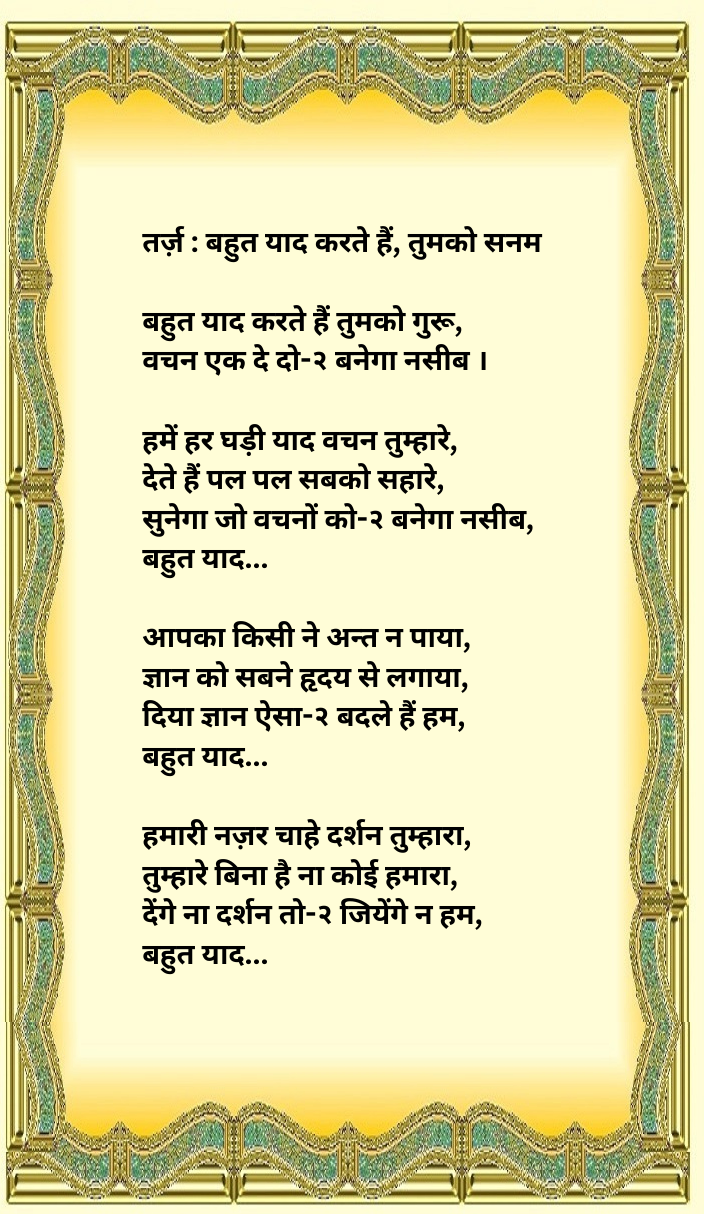 तर्ज़ : बहुत याद करते हैं, तुमको सनम
बहुत याद करते हैं तुमको गुरू,
वचन एक दे दो-२ बनेगा नसीब ।
हमें हर घड़ी याद वचन तुम्हारे,
देते हैं पल पल सबको सहारे,
सुनेगा जो वचनों को-२ बनेगा नसीब,
बहुत याद...
आपका किसी ने अन्त न पाया,
ज्ञान को सबने हृदय से लगाया,
दिया ज्ञान ऐसा-२ बदले हैं हम,
बहुत याद...
हमारी नज़र चाहे दर्शन तुम्हारा,
तुम्हारे बिना है ना कोई हमारा,
देंगे ना दर्शन तो-२ जियेंगे न हम,
बहुत याद...